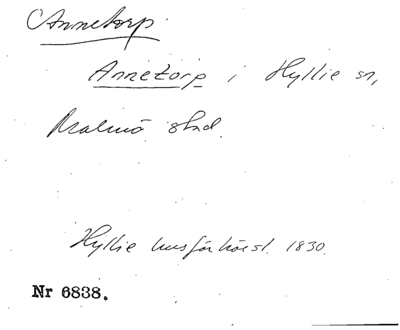 Annetorp.
Annetorp i Hyllie sn,
Malmö stad.
Hyllie husförhörsl. 1830.
Nr 6838.